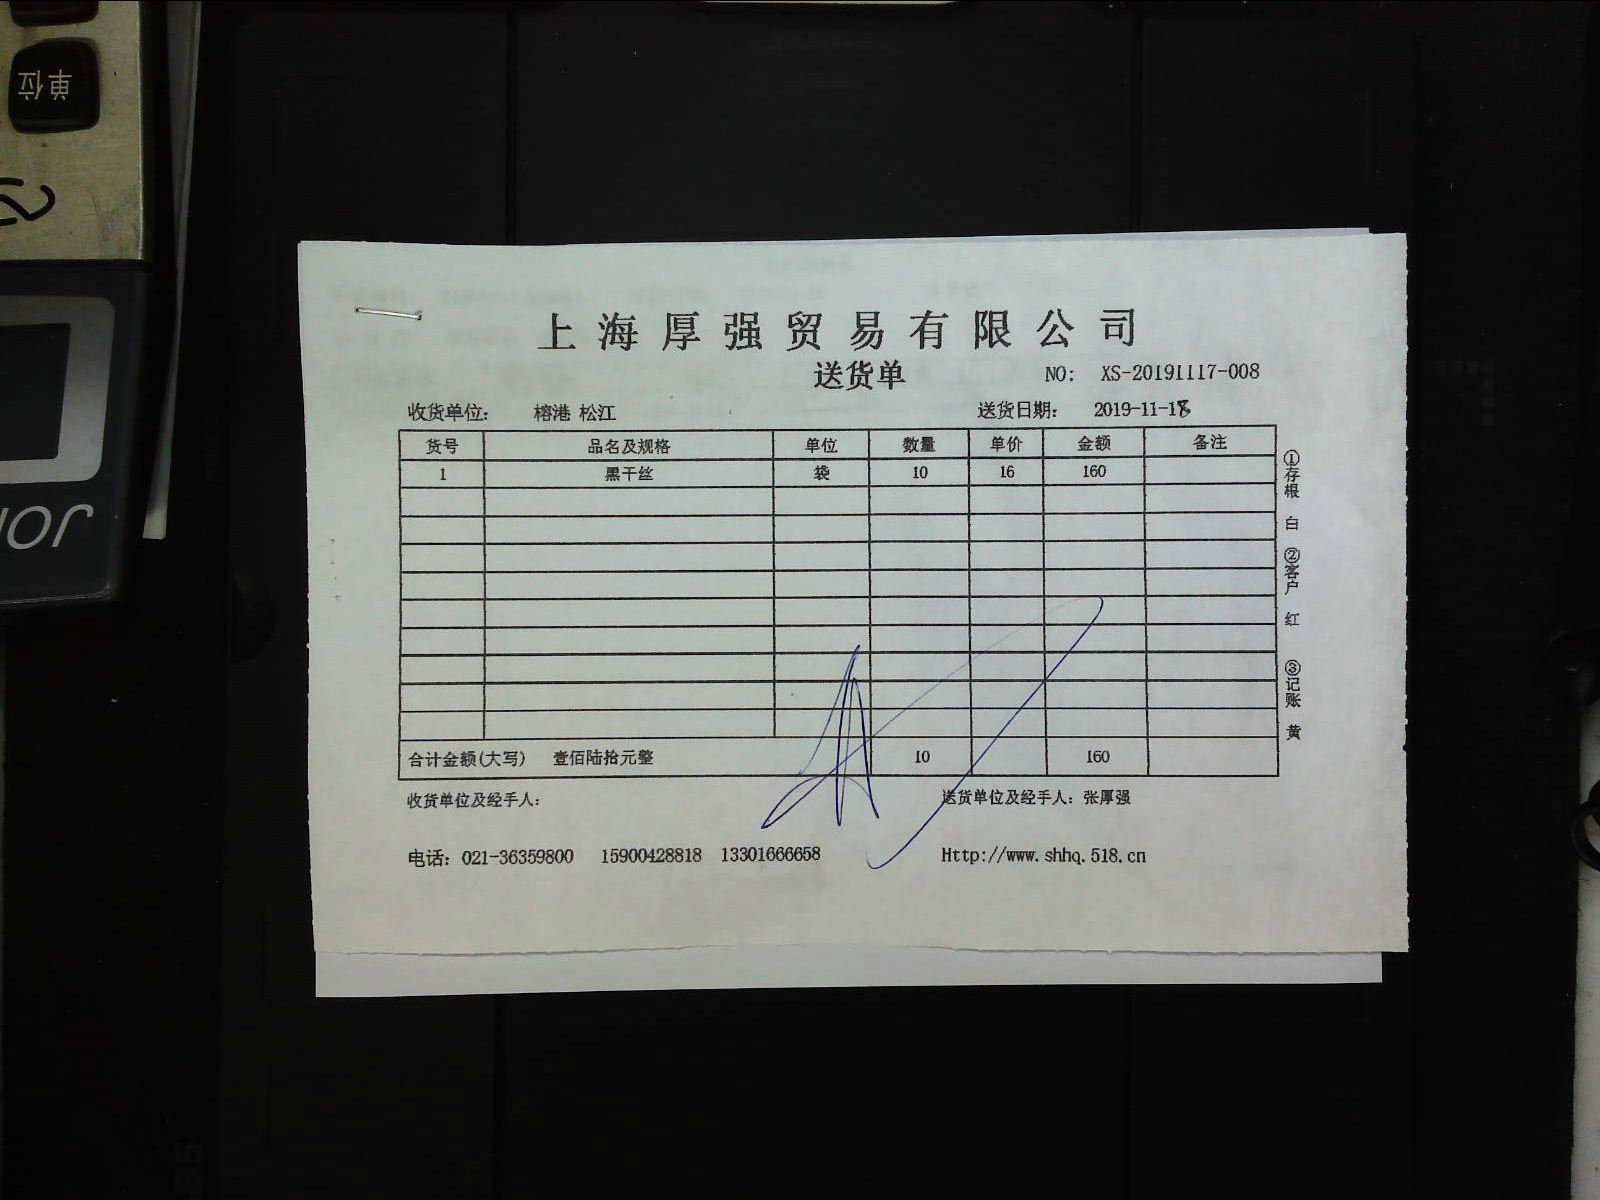 单位
上海厚强贸易有限公司
送货单
NO: XS-20191117-008
收货单位: 榕港 松江
送货日期: 2019-11-18
货号 品名及规格 单位 数量 单价 金额 备注
1 黑干丝 袋 10 16 160
合计金额(大写) 壹佰陆拾元整 10 160
收货单位及经手人:
送货单位及经手人: 张厚强
电话: 021-36359800 15900428818 13301666658
Http://www.shhq.518.cn
①存根 白 ②客户 红 ③记账 黄